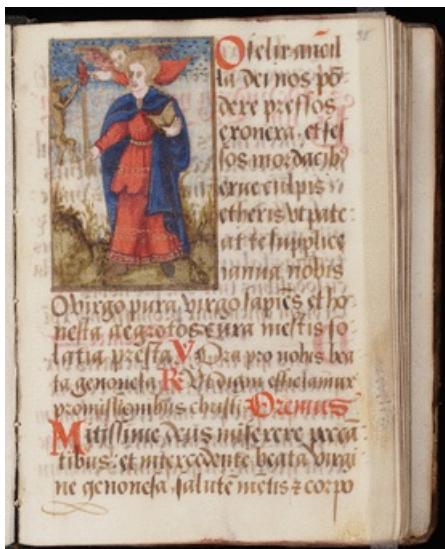 O felix ancil
la dei nos pō
dere pressos
exonera. et fes
sos mordacib9
exue culpis
etheris vt pate
at te supplice
ianua nobis
O virgo pura virgo sapiēs et ho
nesta aegrotos cura mestis so
latia presta V Ora pro nobis bea
ta genouefa R Vt digni efficiamur
promissionibus christi Oremus
Mitissime deus miserere precā
tibus: et intercedente beata virgi
ne genouefa. salutē mētis z corpo